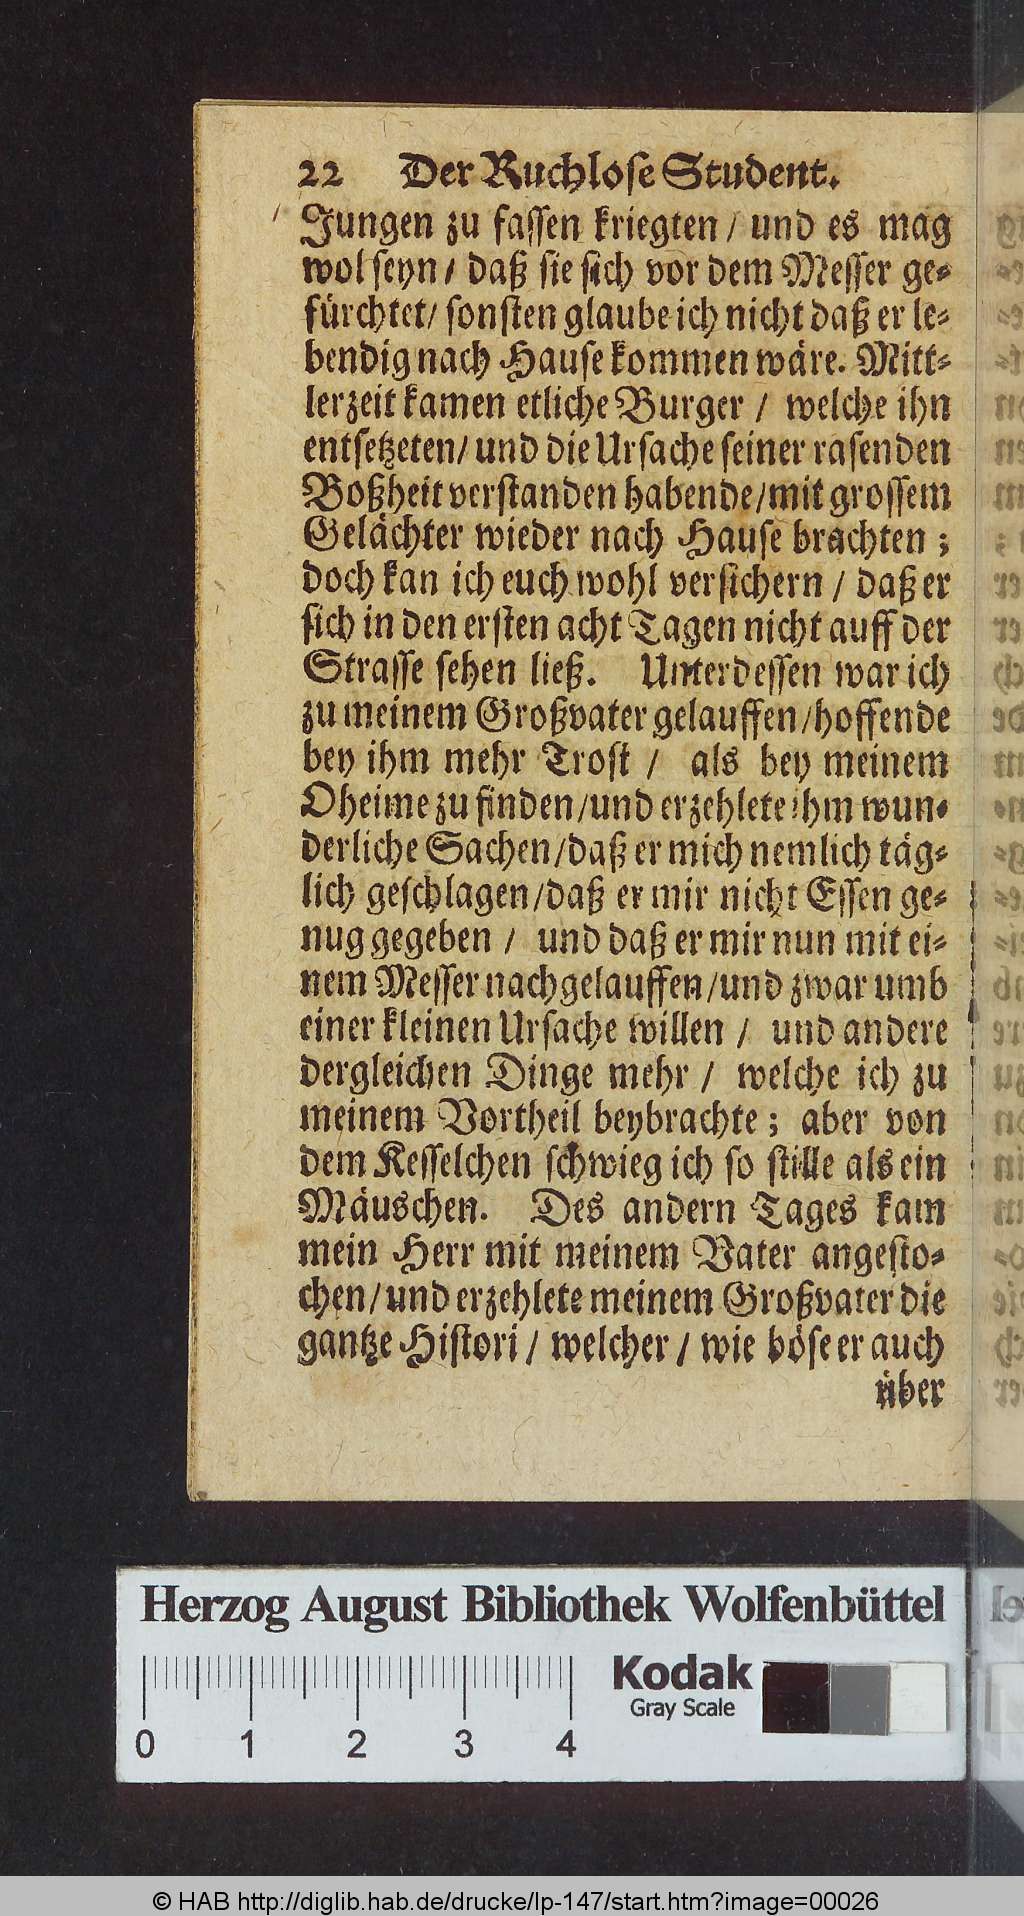 22 Der Ruchlose Student.
Jungen zu fassen kriegten / und es mag
wol seyn / daß sie sich vor dem Messer ge-
fürchtet / sonsten glaube ich nicht daß er le-
bendig nach Hause kommen wäre. Mitt-
lerzeit kamen etliche Burger / welche ihn
entsetzeten / und die Ursache seiner rasenden
Boßheit verstanden habende / mit grossem
Gelächter wieder nach Hause brachten ;
doch kan ich euch wohl versichern / daß er
sich in den ersten acht Tagen nicht auff der
Strasse sehen ließ. Unterdessen war ich
zu meinem Großvater gelauffen / hoffende
bey ihm mehr Trost / als bey meinem
Oheime zu finden / und erzehlete ihm wun-
derliche Sachen / daß er mich nemlich täg-
lich geschlagen / daß er mir nicht Essen ge-
nug gegeben / und daß er mir nun mit ei-
nem Messer nachgelauffen / und zwar umb
einer kleinen Ursache willen / und andere
dergleichen Dinge mehr / welche ich zu
meinem Vortheil beybrachte ; aber von
dem Kesselchen schwieg ich so stille als ein
Mäuschen. Des andern Tages kam
mein Herr mit meinem Vater angesto-
chen / und erzehlete meinem Großvater die
gantze Histori / welcher / wie böse er auch
über
Herzog August Bibliothek Wolfenbüttel
Kodak
Gray Scale
0 1 2 3 4
© HAB http://diglib.hab.de/drucke/lp-147/start.htm?image=00026